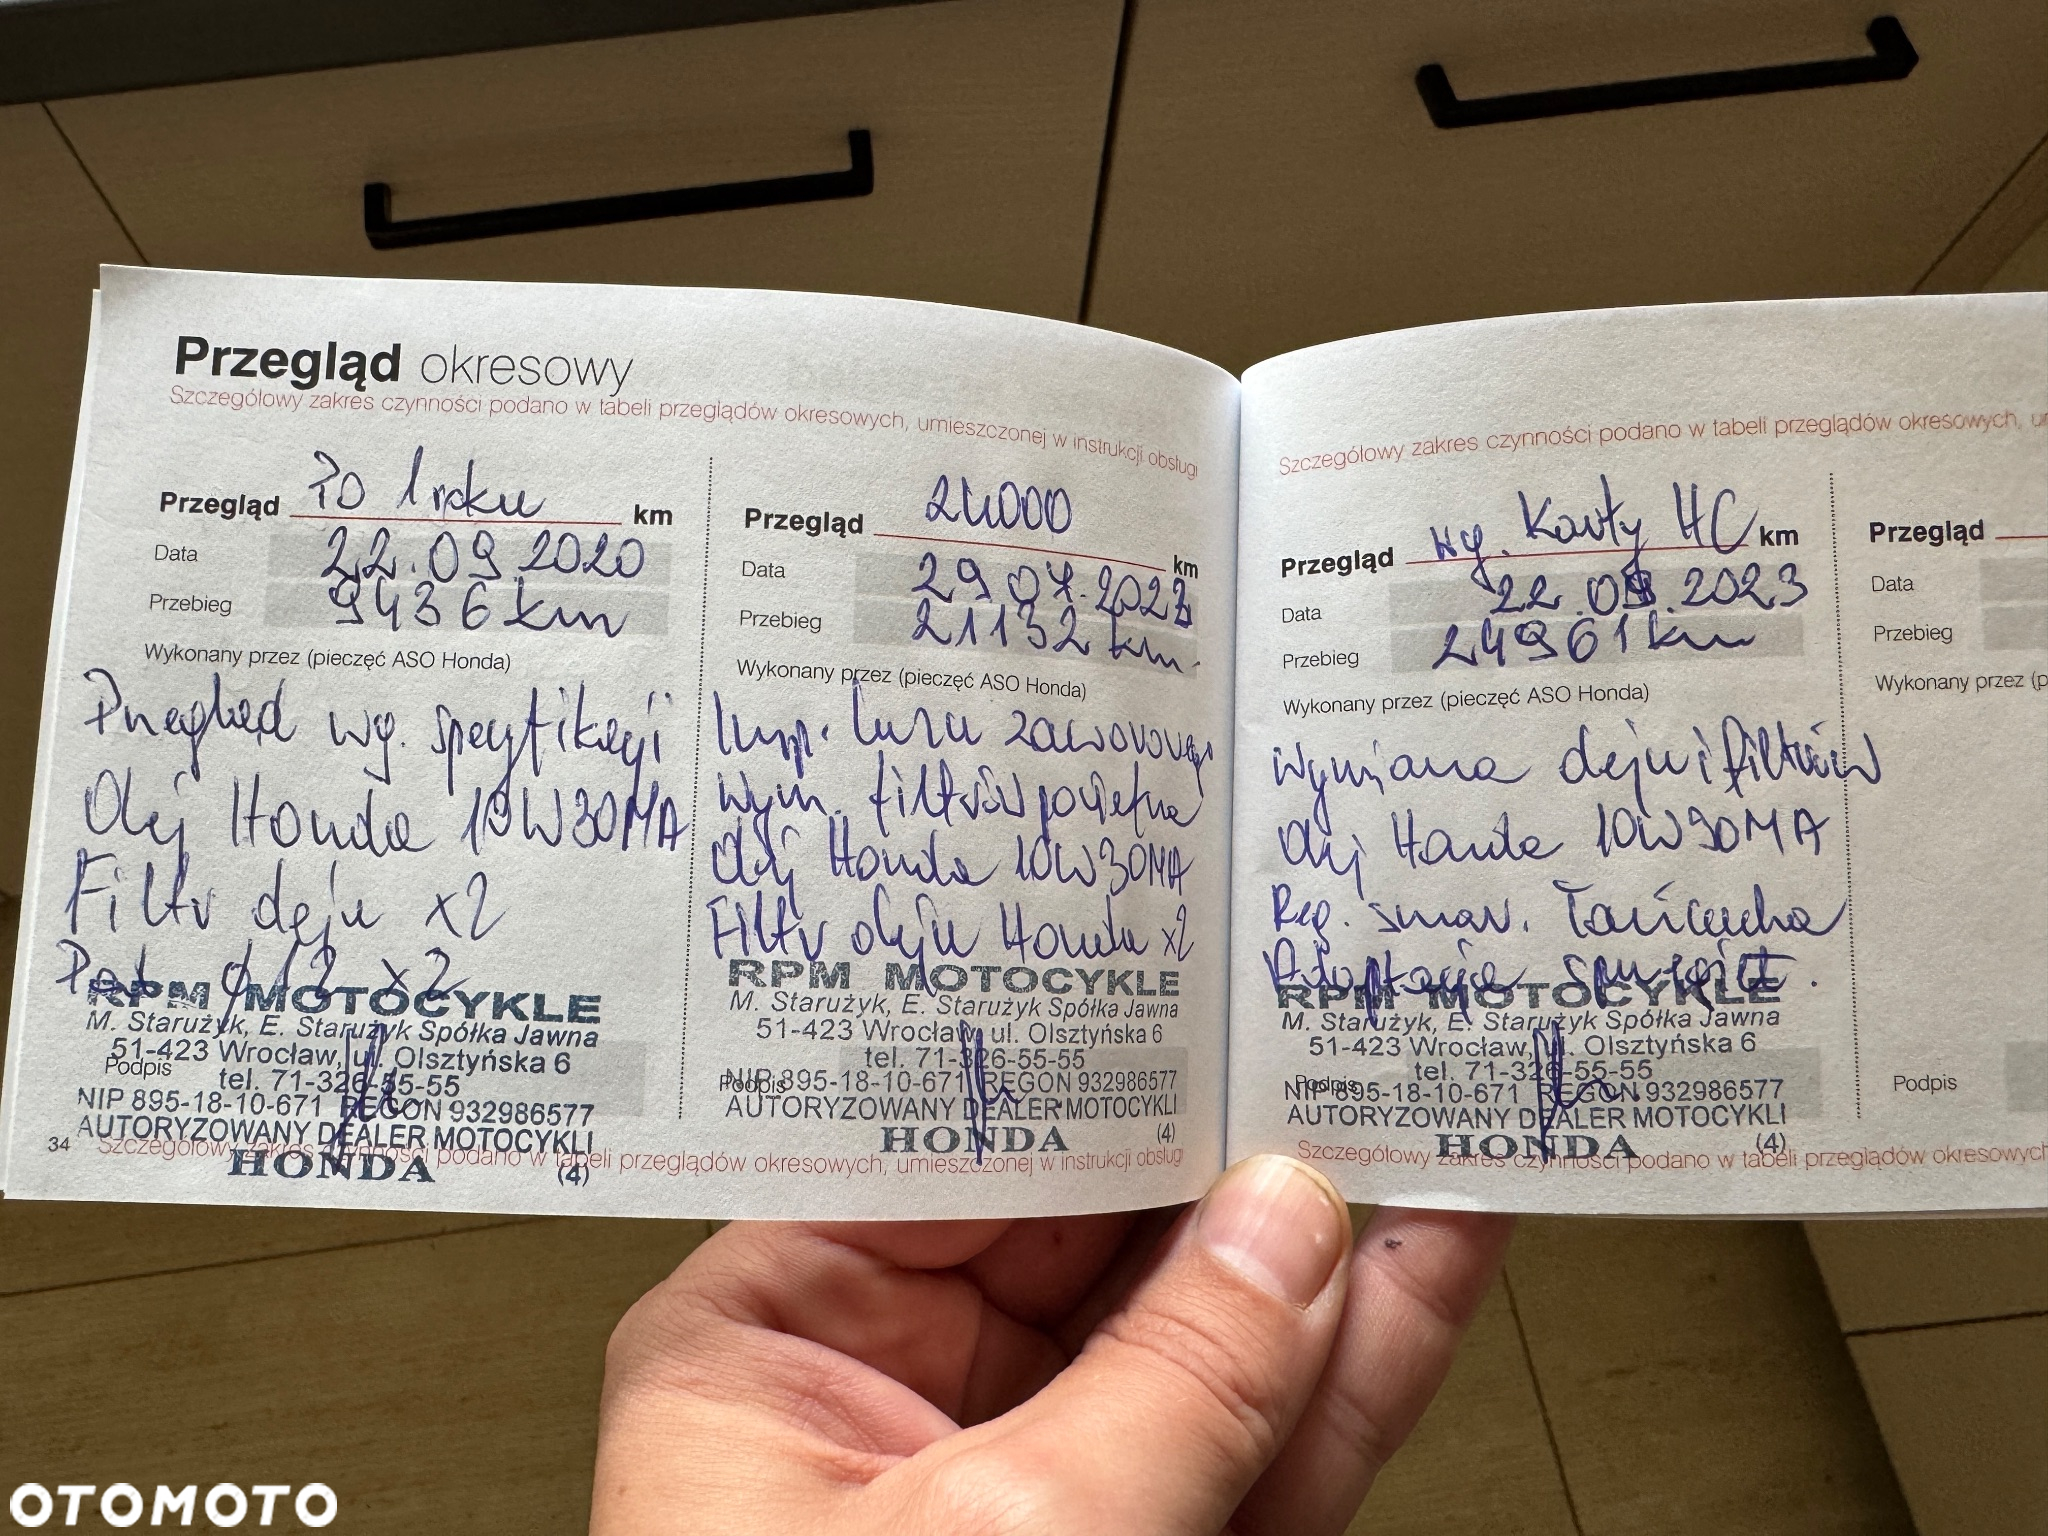 Przegląd okresowy
Szczegółowy zakres czynności podano w tabeli przeglądów okresowych, umieszczonej w instrukcji obsługi
Przegląd Po 1 roku km
Data 22.09.2020
Przebieg 9436 km
Wykonany przez (pieczęć ASO Honda)
Przegląd wg. specyfikacji
Olej Honda 10W30MA
Filtr oleju x2
RPM MOTOCYKLE
M. Starużyk, E. Starużyk Spółka Jawna
51-423 Wrocław, ul. Olsztyńska 6
Podpis
tel. 71-326-55-55
NIP 895-18-10-671 REGON 932986577
AUTORYZOWANY DEALER MOTOCYKLI
HONDA (4)
34
Szczegółowy zakres czynności podano w tabeli przeglądów okresowych, umieszczonej w instrukcji obsługi
Przegląd 24000 km
Data 29.07.2022
Przebieg 21132 km
Wykonany przez (pieczęć ASO Honda)
Insp. luzu zaworowego
Wym. filtrów powietrza
Olej Honda 10W30MA
Filtr oleju Honda x2
RPM MOTOCYKLE
M. Starużyk, E. Starużyk Spółka Jawna
51-423 Wrocław, ul. Olsztyńska 6
tel. 71-326-55-55
Podpis
NIP 895-18-10-671 REGON 932986577
AUTORYZOWANY DEALER MOTOCYKLI
HONDA (4)
Szczegółowy zakres czynności podano w tabeli przeglądów okresowych,
Przegląd wg. Karty HC km
Data 22.09.2023
Przebieg 24961 km
Wykonany przez (pieczęć ASO Honda)
Wymiana oleju i filtrów
Olej Honda 10W30MA
Reg. smar. łańcucha
Adaptacja sprzęgieł.
RPM MOTOCYKLE
M. Starużyk, E. Starużyk Spółka Jawna
51-423 Wrocław, ul. Olsztyńska 6
tel. 71-326-55-55
Podpis
NIP 895-18-10-671 REGON 932986577
AUTORYZOWANY DEALER MOTOCYKLI
HONDA (4)
Szczegółowy zakres czynności podano w tabeli przeglądów okresowych
Przegląd
Data
Przebieg
Wykonany przez (p
Podpis
OTOMOTO